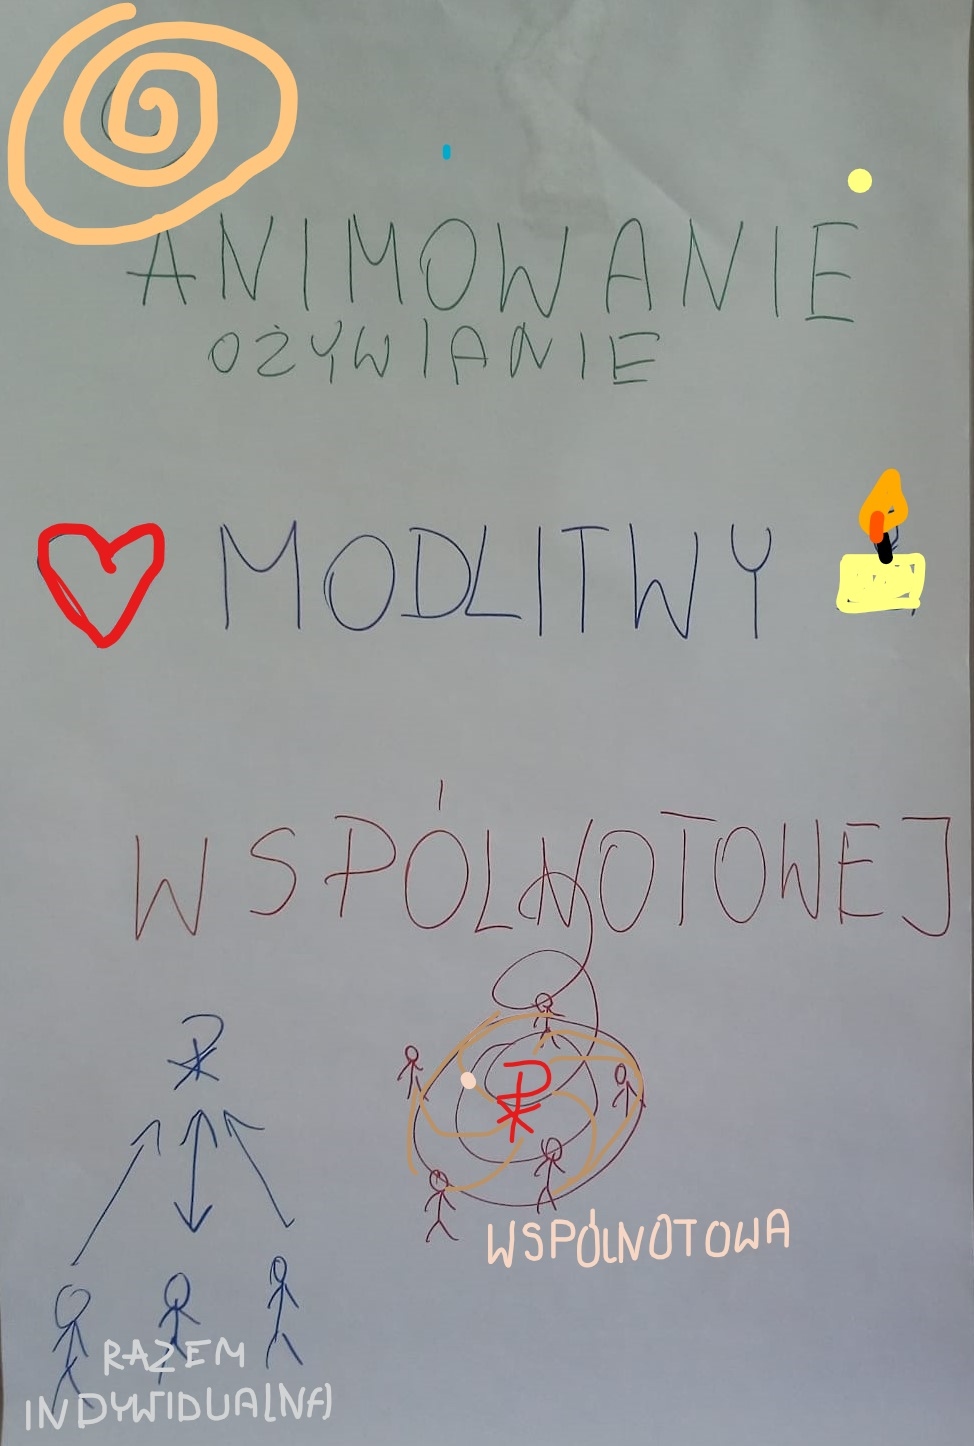 ANIMOWANIE
OŻYWIANIE
MODLITWY
WSPÓLNOTOWEJ
WSPÓLNOTOWA
RAZEM
INDYWIDUALNA